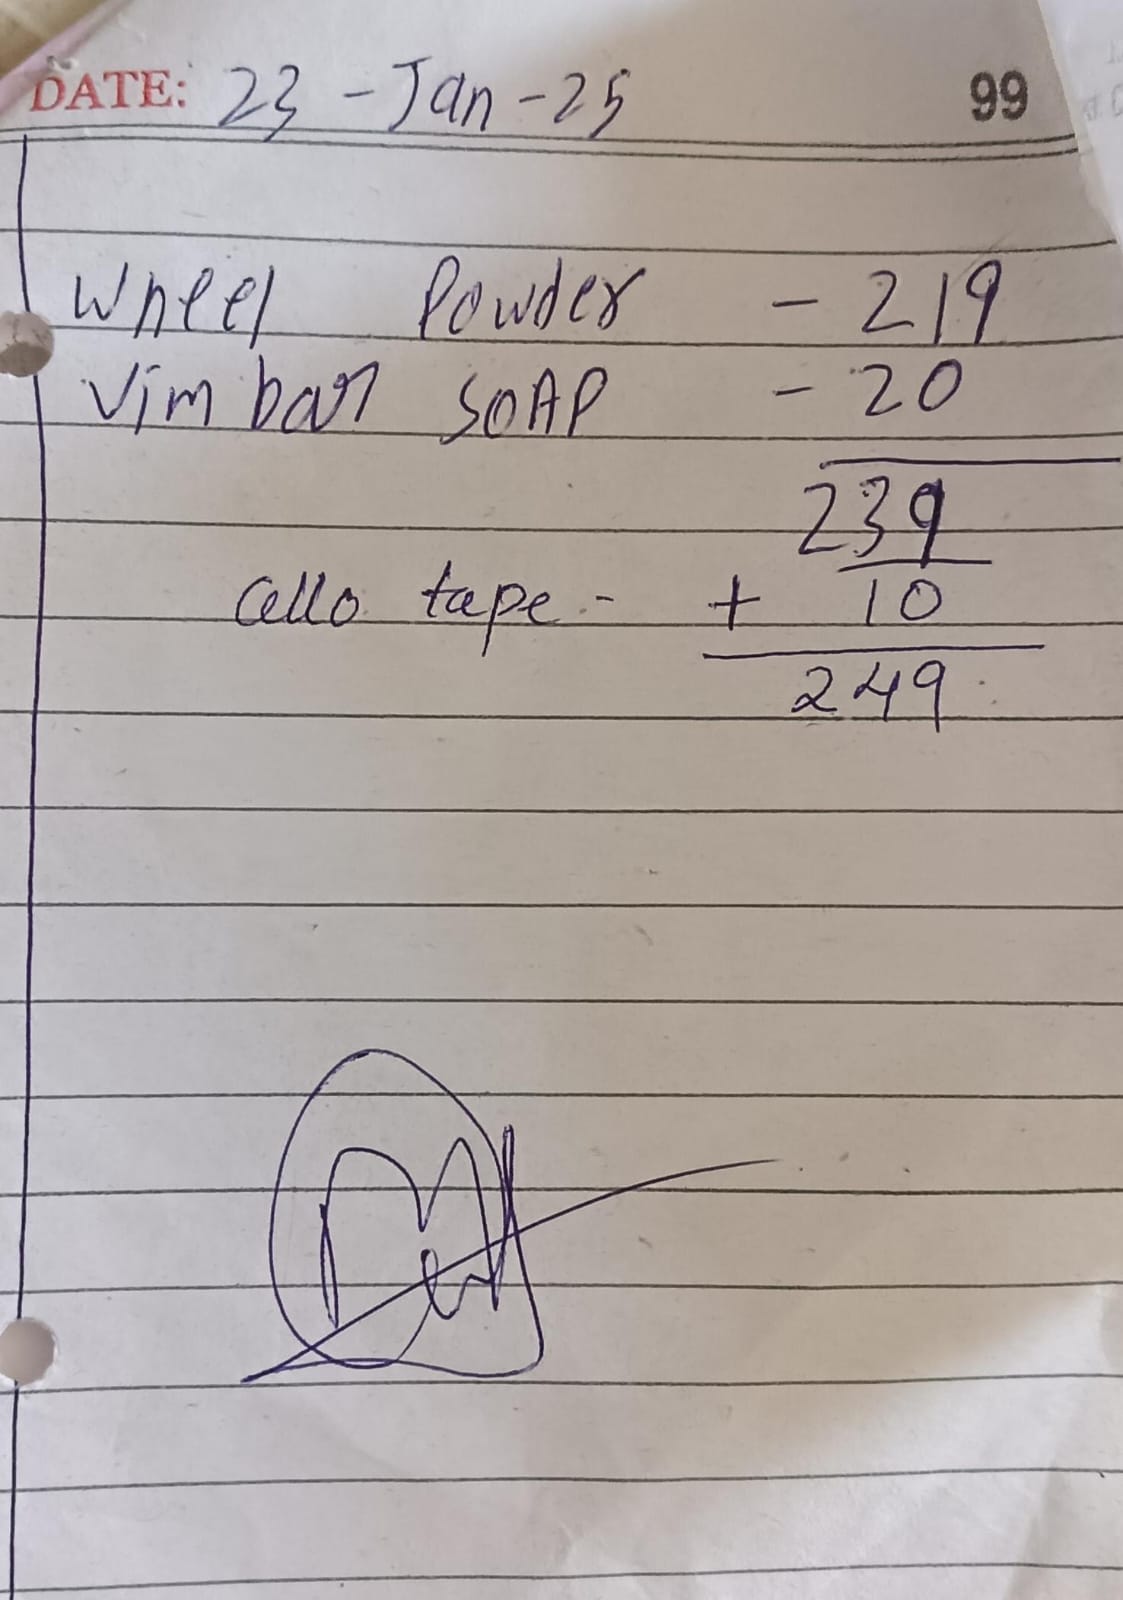 DATE: 23 - Jan - 25 99
Wheel Powder - 219
Vim bar SOAP - 20
239
Cello tape - + 10
249